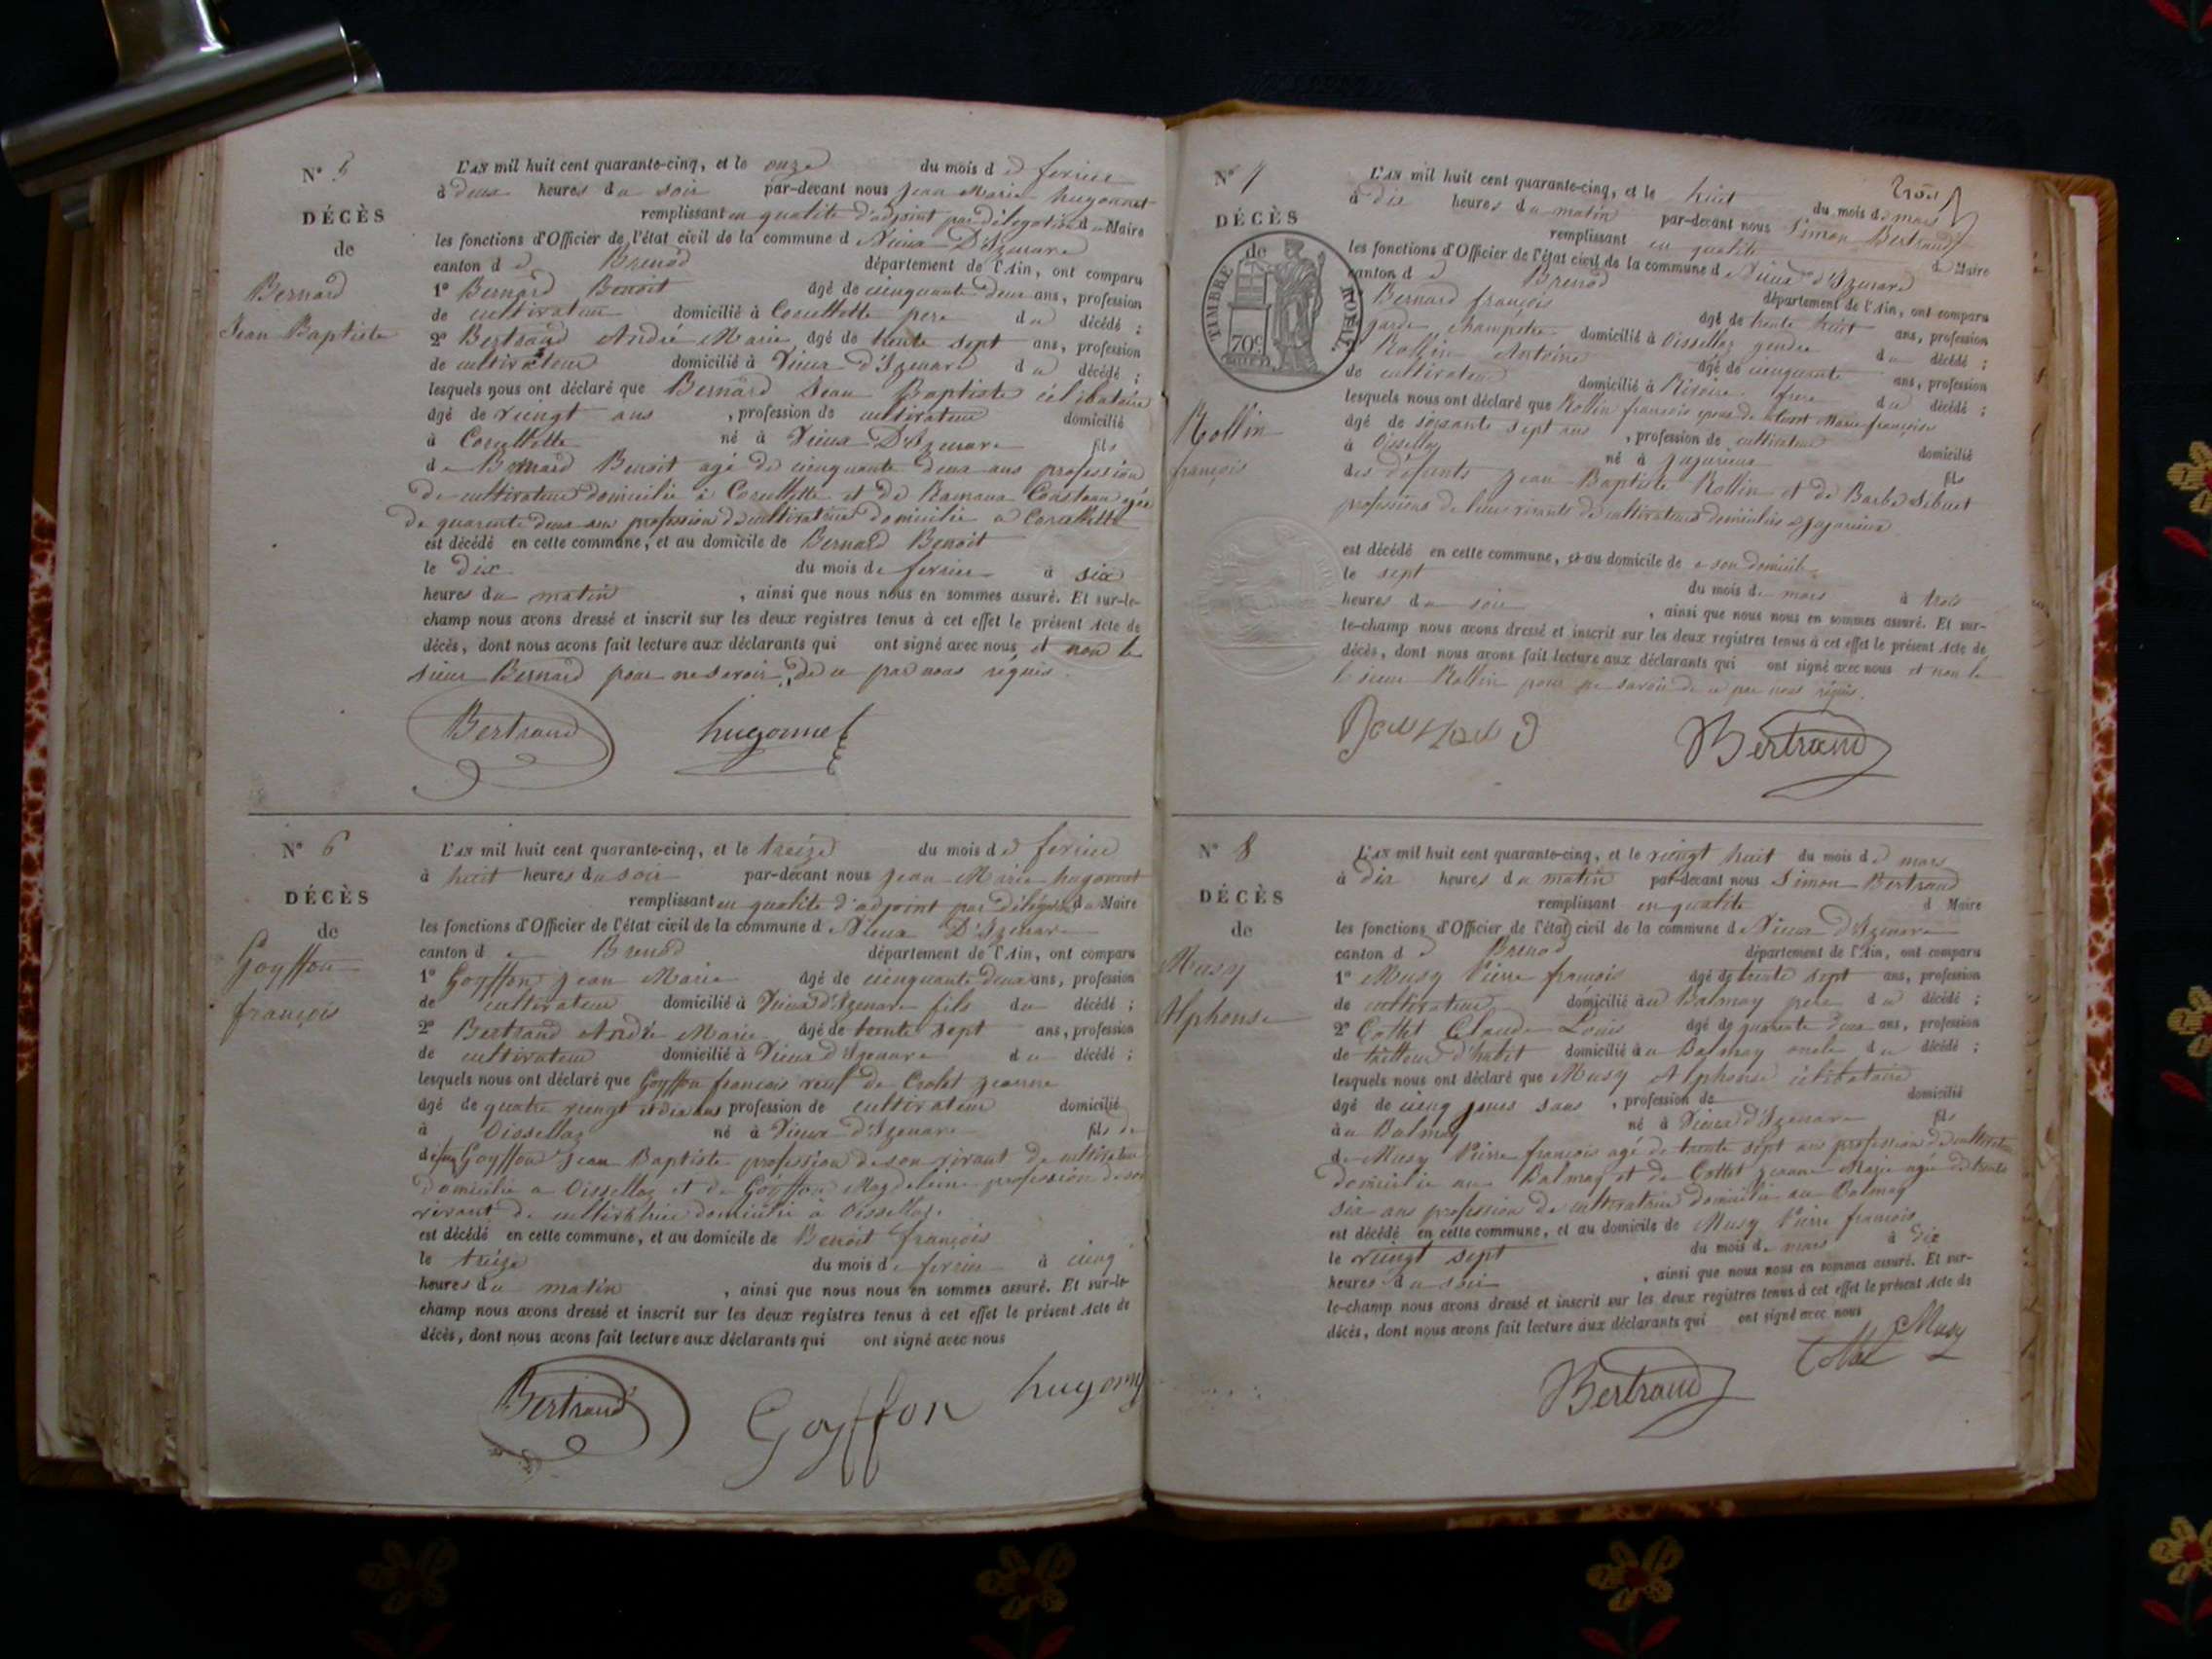 N° 5
DÉCÈS
de
Bernard
Jean Baptiste
L'AN mil huit cent quarante-cinq, et le onze du mois d e fevrier
à deux heures du soir par-devant nous jean Marie hugonnet
remplissant en qualité d'adjoint par délégation du Maire
les fonctions d'Officier de l'état civil de la commune d e Vieux D'Izenave
canton d e Brenod département de l'Ain, ont comparu
1° Bernard Benoit âgé de cinquante deux ans, profession
de cultivateur domicilié à Corcellette pere du décédé ;
2° Bertrand André Marie âgé de trente sept ans, profession
de cultivateur domicilié à Vieux d'Izenave du décédé ;
lesquels nous ont déclaré que Bernard Jean Baptiste célibataire
âgé de vingt ans , profession de cultivateur domicilié
à Corcellette né à Vieux D'Izenave fils
de Bernard Benoit agé de cinquante deux ans profession
de cultivateur domicilié à Corcellette et de Ramana agée
de quarente deux ans profession de cultivatrice domicilié a Corcellette
est décédé en cette commune, et au domicile de Bernard Benoit
le dix du mois de fevrier à six
heures du matin , ainsi que nous nous en sommes assuré. Et sur-le-
champ nous avons dressé et inscrit sur les deux registres tenus à cet effet le présent Acte de
décès, dont nous avons fait lecture aux déclarants qui ont signé avec nous et non le
sieur Bernard pour ne savoir de ce par nous réquis.
Bertrand hugonnet
N° 6
DÉCÈS
de
Goyffon
françois
L'AN mil huit cent quarante-cinq, et le treize du mois d e fevrier
à huit heures du soir par-devant nous jean Marie hugonnet
remplissant en qualité d'adjoint par délégation du Maire
les fonctions d'Officier de l'état civil de la commune d e Vieux D'Izenave
canton d e Brenod département de l'Ain, ont comparu
1° Goyffon jean Marie âgé de cinquante deux ans, profession
de cultivateur domicilié à Vieux d'Izenave fils du décédé ;
2° Bertrand André Marie âgé de trente sept ans, profession
de cultivateur domicilié à Vieux d'Izenave du décédé ;
lesquels nous ont déclaré que Goyffon françois veuf de Crolet jeanne
âgé de quatre vingt et dix ans profession de cultivateur domicilié
à Oissellaz né à Vieux d'Izenave fils de
défunt Goyffon Jean Baptiste profession de son vivant de cultivateur
domicilié a Oissellaz et de Goyffon Magdeleine profession de son
vivant de cultivatrice domicilié a Oissellaz.
est décédé en cette commune, et au domicile de Benoit françois
le treize du mois de fevrier à cinq
heures du matin , ainsi que nous nous en sommes assuré. Et sur-le-
champ nous avons dressé et inscrit sur les deux registres tenus à cet effet le présent Acte de
décès, dont nous avons fait lecture aux déclarants qui ont signé avec nous
Bertrand Goyffon hugonn
N° 7
DÉCÈS
de
TIMBRE ROYAL
70c
Rollin
françois
L'AN mil huit cent quarante-cinq, et le huit du mois de mars
à dix heures du matin par-devant nous Simon Bertrand
remplissant en qualité d Maire
les fonctions d'Officier de l'état civil de la commune d e Vieux d'Izenave
canton d e Brenod département de l'Ain, ont comparu
Bernard françois âgé de trente huit ans, profession
garde champêtre domicilié à Oissellaz gendre du décédé ;
Rollin Antoine âgé de cinquante ans, profession
de cultivateur domicilié à frere du décédé ;
lesquels nous ont déclaré que Rollin françois epoux de Marie françoise
âgé de soixante sept ans , profession de cultivateur domicilié
à Oissellaz né à Jujurieux fils
des défunts jean Baptiste Rollin et de Barbe Sibuet
professions de leurs vivants de cultivateurs domiciliés a Jujurieux
est décédé en cette commune, et au domicile de a son domicile
le sept du mois de mars à trois
heures du soir , ainsi que nous nous en sommes assuré. Et sur-
le-champ nous avons dressé et inscrit sur les deux registres tenus à cet effet le présent Acte de
décès, dont nous avons fait lecture aux déclarants qui ont signé avec nous et non le
le sieur Rollin pour ne savoir de ce par nous réquis.
Bertrand
N° 8
DÉCÈS
de
Musy
Alphonse
L'AN mil huit cent quarante-cinq, et le vingt huit du mois d e mars
à dix heures du matin par-devant nous Simon Bertrand
remplissant en qualité d Maire
les fonctions d'Officier de l'état civil de la commune de Vieux d'Izenave
canton d e Brenod département de l'Ain, ont comparu
1° Musy Pierre françois âgé de trente sept ans, profession
de cultivateur domicilié au Balmay pere du décédé ;
2° Cottet Claude Louis âgé de quarante deux ans, profession
de tailleur d'habit domicilié au Balmay oncle du décédé ;
lesquels nous ont déclaré que Musy Alphonse célibataire
âgé de cinq jours sans , profession de domicilié
à au Balmay né à Vieux d'Izenave fils
de Musy Pierre françois agé de trente sept ans profession de cultivateur
domicilié au Balmay et de Cottet jeanne Marie agée de trente
six ans profession de cultivatrice domicilié au Balmay
est décédé en cette commune, et au domicile de Musy Pierre françois
le vingt sept du mois de mars à dix
heures du soir , ainsi que nous nous en sommes assuré. Et sur-
le-champ nous avons dressé et inscrit sur les deux registres tenus à cet effet le présent Acte de
décès, dont nous avons fait lecture aux déclarants qui ont signé avec nous
Bertrand Cottet Musy